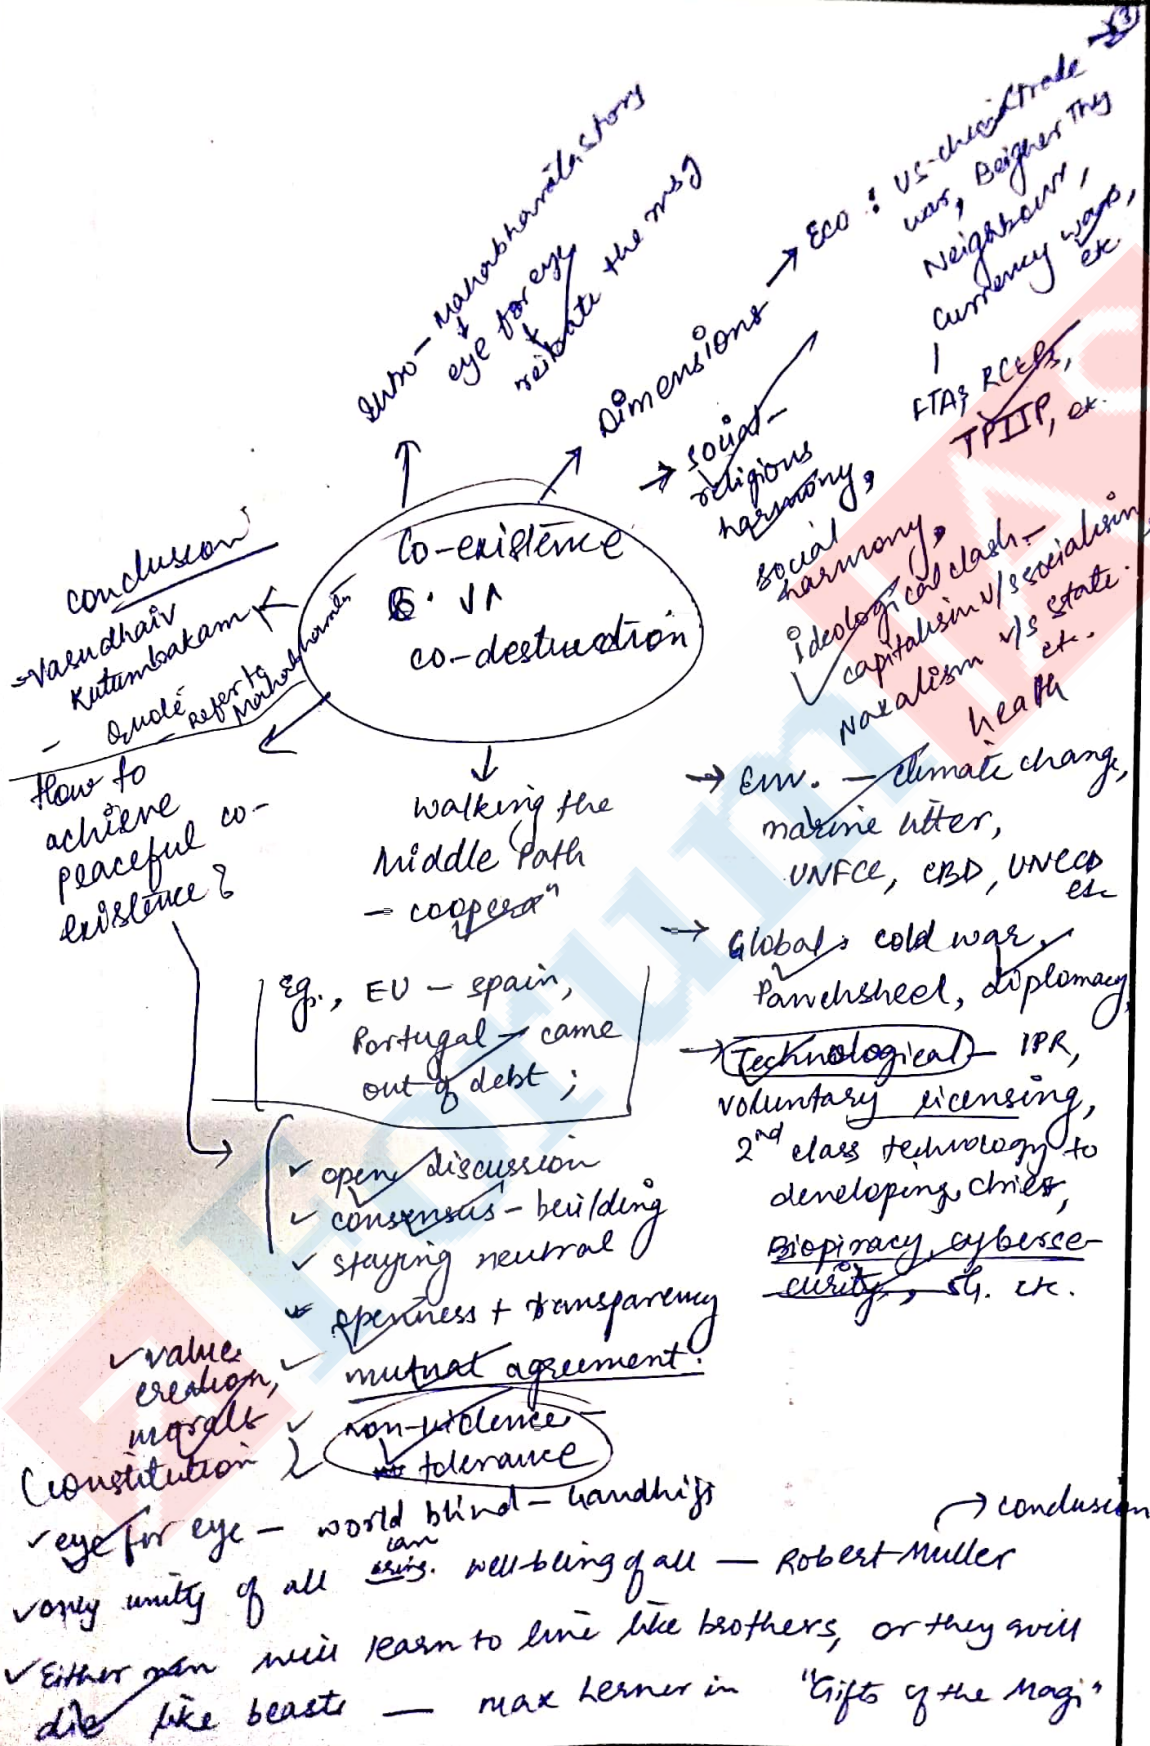 (3)
Intro - Mahabharata story
eye for eye
the msg
Dimensions → Eco : US-china trade
war, Beigher Thy
Neighbour,
currency wars,
etc
FTAs RCEPs,
TPIIP, etc.
→ social -
religious
harmony,
social
harmony,
ideological clash -
capitalism v/s socialism
Naxalism v/s state.
etc.
heath
→ Env. - climate change,
marine litter,
UNFCC, CBD, UNCCD
etc
→ Global : cold war,
Panchsheel, diplomacy,
→ Technological - IPR,
voluntary licensing,
2nd class technology to
developing
Biopiracy, cyberse-
curity, 5G. etc.
Co-existence
co-destruction
conclusion
→ Vasudhaiv
Kutumbakam
- Quote
- Refer to
Mahabharata
How to
achieve
peaceful co-
existence?
walking the
Middle Path
- cooperan
Eg., EU - spain,
Portugal - came
out of debt ;
✓ open discussion
✓ consensus - building
✓ staying neutral
openness + transparency
✓ mutual agreement.
✓ non-violence -
tolerance
✓ value
creation,
morals
(constitution)
✓ eye for eye - world blind - Gandhiji
→ conclusion
✓ only unity of all can well-being of all - Robert Muller
✓ Either men will learn to live like brothers, or they will
die like beasts - Max Lerner in "Gifts of the Magi"
Forum IAS